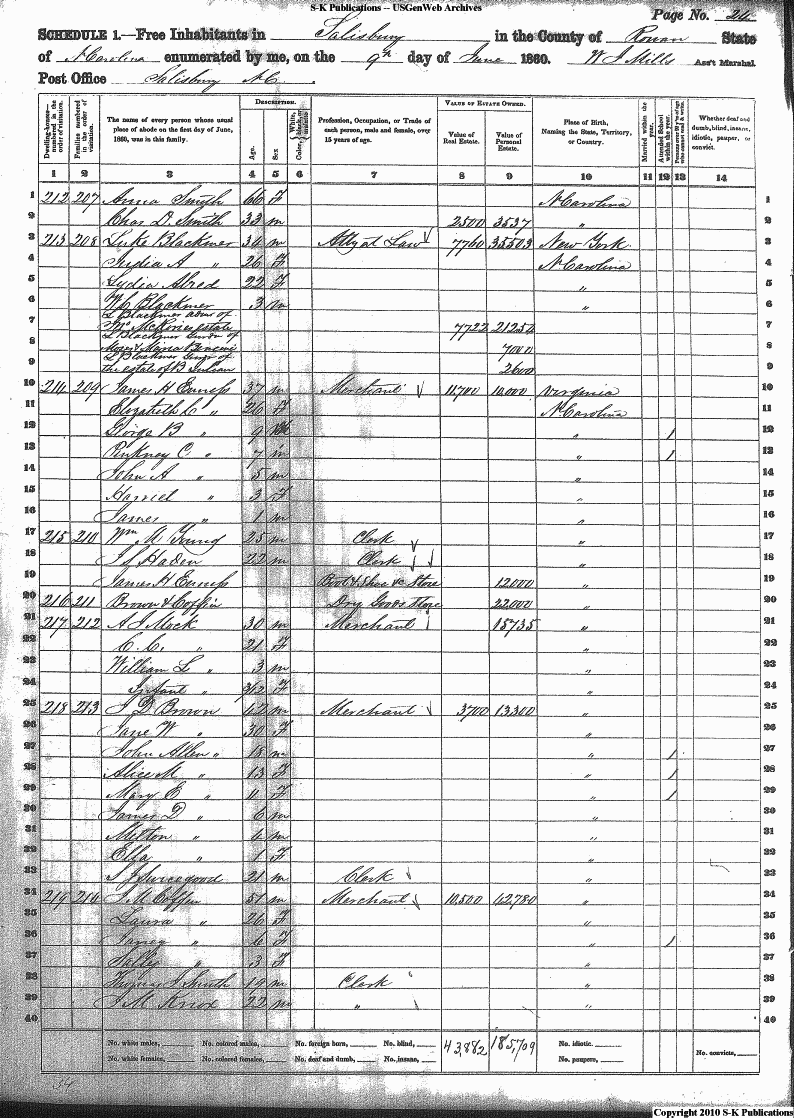 S-K Publications -- USGenWeb Archives
Page No. 26
SCHEDULE 1.—Free Inhabitants in Salisbury in the County of Rowan State
of N Carolina enumerated by me, on the 9th day of June 1860. W J Mills Ass't Marshal.
Post Office Salisbury N.C.
Dwelling-houses—numbered in the order of visitation.
Families numbered in the order of visitation.
The name of every person whose usual place of abode on the first day of June, 1860, was in this family.
DESCRIPTION.
Age.
Sex.
Color, White, black, or mulatto.
Profession, Occupation, or Trade of each person, male and female, over 15 years of age.
VALUE OF ESTATE OWNED.
Value of Real Estate.
Value of Personal Estate.
Place of Birth, Naming the State, Territory, or Country.
Married within the year.
Attended School within the year.
Persons over 20 y'rs of age who cannot read & write.
Whether deaf and dumb, blind, insane, idiotic, pauper, or convict.
1 2 3 4 5 6 7 8 9 10 11 12 13 14
1 212 207 Anna Smyth 66 F N Carolina 1
2 Chas D. Smith 33 m 2500 3537 " 2
3 213 208 Luke Blackmer 34 m Atty at Law 7760 35503 New York 3
4 Lydia A " 26 F N Carolina 4
5 Lydia Alred 22 F " 5
6 W C Blackmer 3 m " 6
L Blackmer admr of
7 estate 7722 21254 7
L Blackmer Gurdn of
8 Moses & Maria 7000 8
L Blackmer Gurdn of
9 the estate of B Julian 2600 9
10 214 209 James H Enniss 37 m Merchant 11,700 10,000 Virginia 10
11 Elizabeth L " 26 F N Carolina 11
12 George B " 9 " 1 12
13 Pinkney C " 7 m " 1 13
14 John A " 5 m " 14
15 Harriel " 3 F " 15
16 James " 1 m " 16
17 215 210 Wm A Young 25 m Clerk " 17
18 Haden 22 m Clerk " 18
19 James H Enniss Boot & Shoe &c Store 12000 " 19
20 216 211 Brown & Coffin Dry Goods Store 22,000 " 20
21 217 212 A J Mock 30 m Merchant 15735 " 21
22 C. C. " 21 F " 22
23 William L " 3 m " 23
24 Infant " 3/12 F " 24
25 218 213 Brown 42 m Merchant 3700 13300 " 25
26 Jane W " 30 F " 26
27 John Allen " 15 m " 1 27
28 Alice M " 13 F " 1 28
29 Mary E " 11 F " 1 29
30 James D " 6 m " 30
31 Milton " 4 m " 31
32 Ella " 1 F " 32
33 Swicegood 21 m Clerk " 33
34 219 214 J M Coffin 51 m Merchant 10,500 42,780 " 34
35 Laura " 26 F " 35
36 " 6 F " 1 36
37 Sally " 3 F " 37
38 Thomas J Smith 19 m Clerk " 38
39 J M Knox 22 m " " 39
40 40
No. white males, No. colored males, No. foreign born, No. blind, 43,882 185,709 No. idiotic.
No. white females, No. colored females, No. deaf and dumb, No. insane, No. paupers, No. convicts,
Copyright 2010 S-K Publications